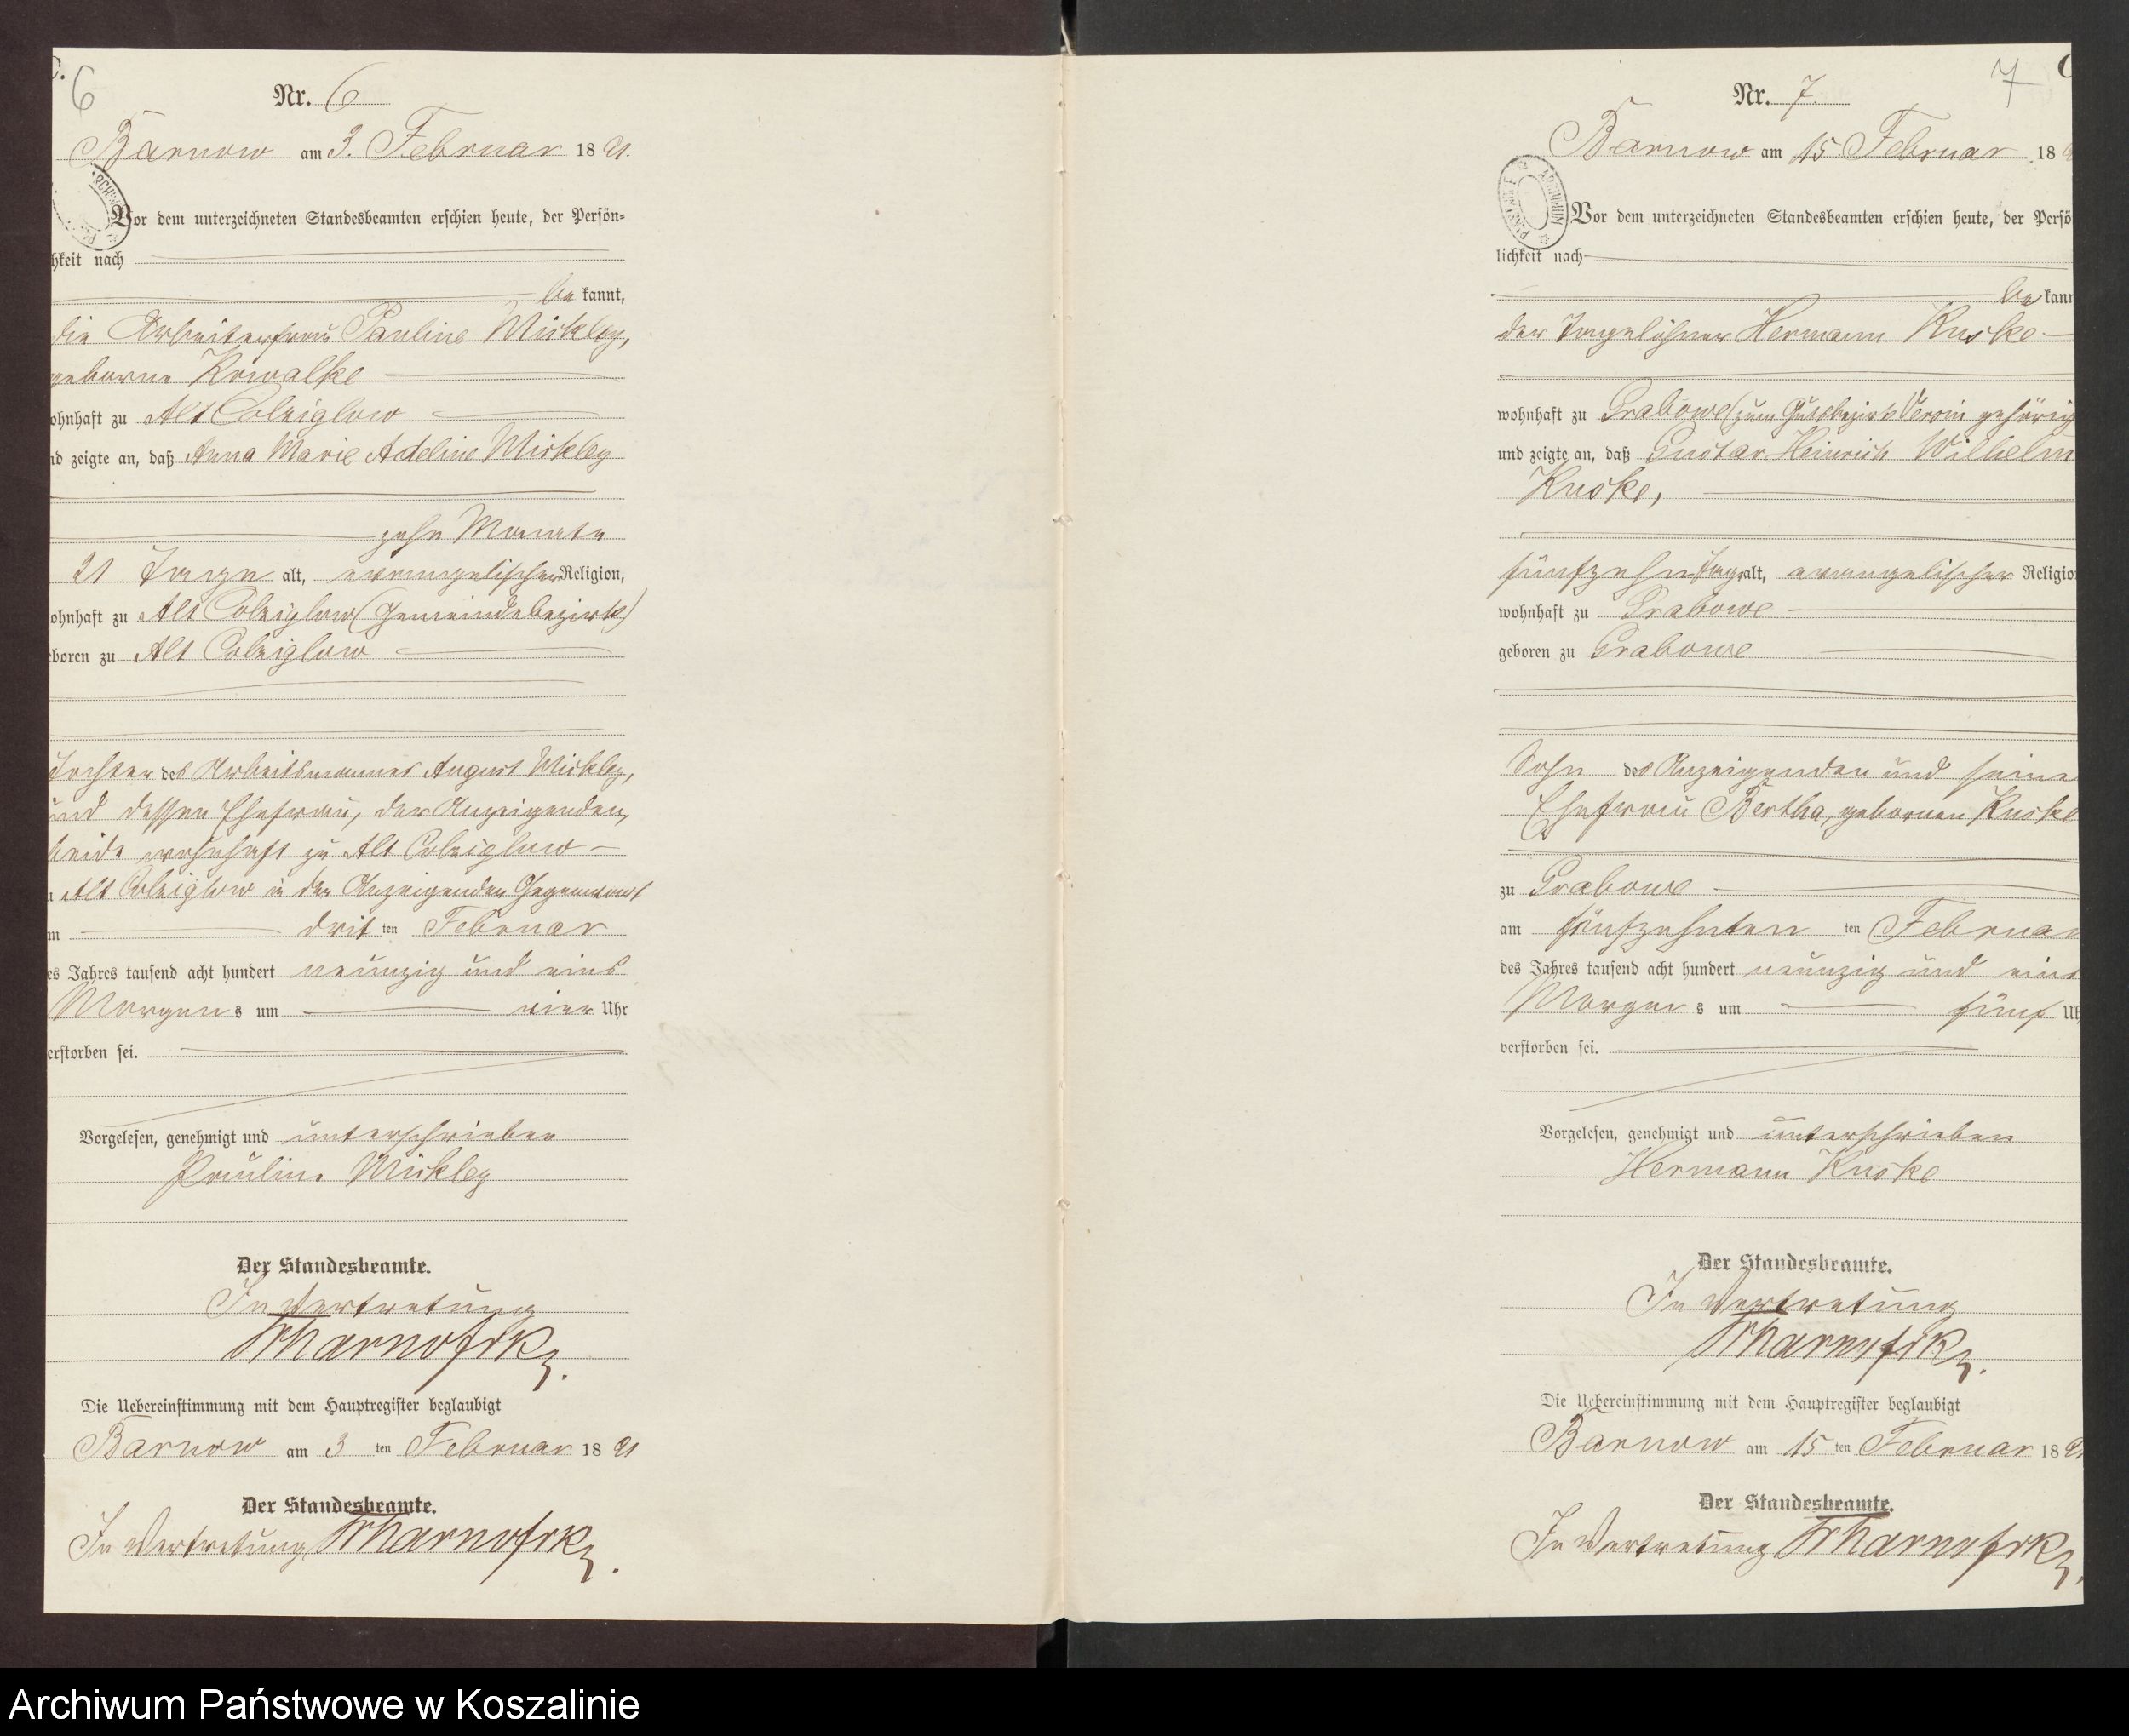 6
Nr. 6
Barnow am 3. Februar 1891.
Vor dem unterzeichneten Standesbeamten erschien heute, der Persön-
hkeit nach
be kannt,
die Arbeiterfrau Pauline Mickley,
geborne Kowalke
ohnhaft zu Alt Colziglow
nd zeigte an, daß Anna Marie Adeline Mickley
zehn Monate
21 Tage alt, evangelischer Religion,
ohnhaft zu Alt Colziglow (Gemeindebezirk)
eboren zu Alt Colziglow
Tochter des Arbeitsmannes August Mickley,
und dessen Ehefrau, der Anzeigenden,
beide wohnhaft zu Alt Colziglow
u Alt Colziglow in der Anzeigenden Gegenwart
m drit ten Februar
es Jahres tausend acht hundert neunzig und eins
Morgens um vier Uhr
erstorben sei.
Vorgelesen, genehmigt und unterschrieben
Pauline Mickley
Der Standesbeamte.
In Vertretung
Die Uebereinstimmung mit dem Hauptregister beglaubigt
Barnow am 3 ten Februar 1891
Der Standesbeamte.
In Vertretung
7
Nr. 7.
Barnow am 15. Februar 189
ARCHIWUM PAŃSTWOWE
Vor dem unterzeichneten Standesbeamten erschien heute, der Persö
lichkeit nach
be kann
der Tagelöhner Hermann Kuske
wohnhaft zu Grabowe (zum Gutsbezirk Versin gehörig
und zeigte an, daß Gustav Heinrich Wilhelm
Kuske,
fünfzehn Tage alt, evangelischer Religio
wohnhaft zu Grabowe
geboren zu Grabowe
Sohn des Anzeigenden und seine
Ehefrau Bertha, gebornen Kuske
zu Grabowe
am fünfzehnten ten Februar
des Jahres tausend acht hundert neunzig und eins
Morgens um fünf Uh
verstorben sei.
Vorgelesen, genehmigt und unterschrieben
Hermann Kuske
Der Standesbeamte.
In Vertretung
Die Uebereinstimmung mit dem Hauptregister beglaubigt
Barnow am 15 ten Februar 1891
Der Standesbeamte.
In Vertretung
Archiwum Państwowe w Koszalinie